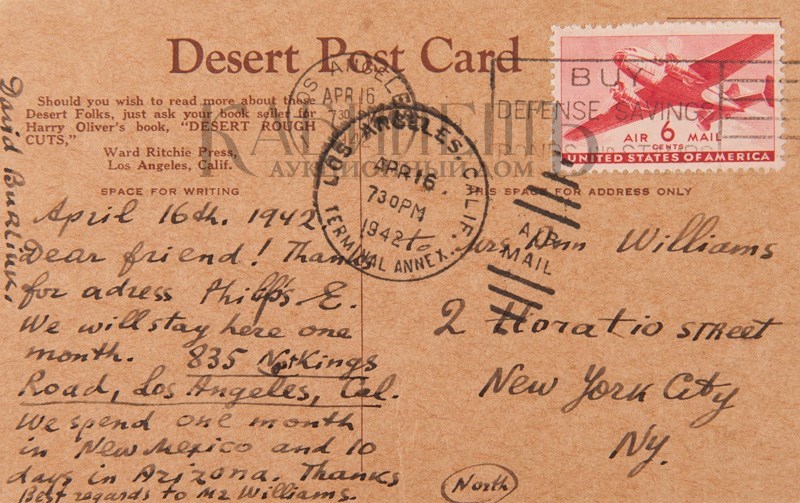 Desert Post Card
Should you wish to read more about these
Desert Folks, just ask your book seller for
Harry Oliver's book, "DESERT ROUGH
CUTS,"
Ward Ritchie Press,
Los Angeles, Calif.
SPACE FOR WRITING
THIS SPACE FOR ADDRESS ONLY
David Burliuk.
April 16th. 1942
Dear friend! Thanks
for adress Philip's E.
We will stay here one
month. 835 Kings
Road, Los Angeles, Cal.
We spend one month
in New Mexico and 10
days in Arizona. Thanks
Best regards to Mr Williams.
North
to Mrs Ann Williams
2 Horatio street
New York City
Ny.
LOS ANGELES
APR 16
730
LOS ANGELES, CALIF.
APR 16.
730PM
1942
TERMINAL ANNEX.
AIR
MAIL
BUY
DEFENSE SAVINGS
BONDS AND STAMPS
AIR 6 MAIL
CENTS
UNITED STATES OF AMERICA
АУКЦИОННЫЙ ДОМ